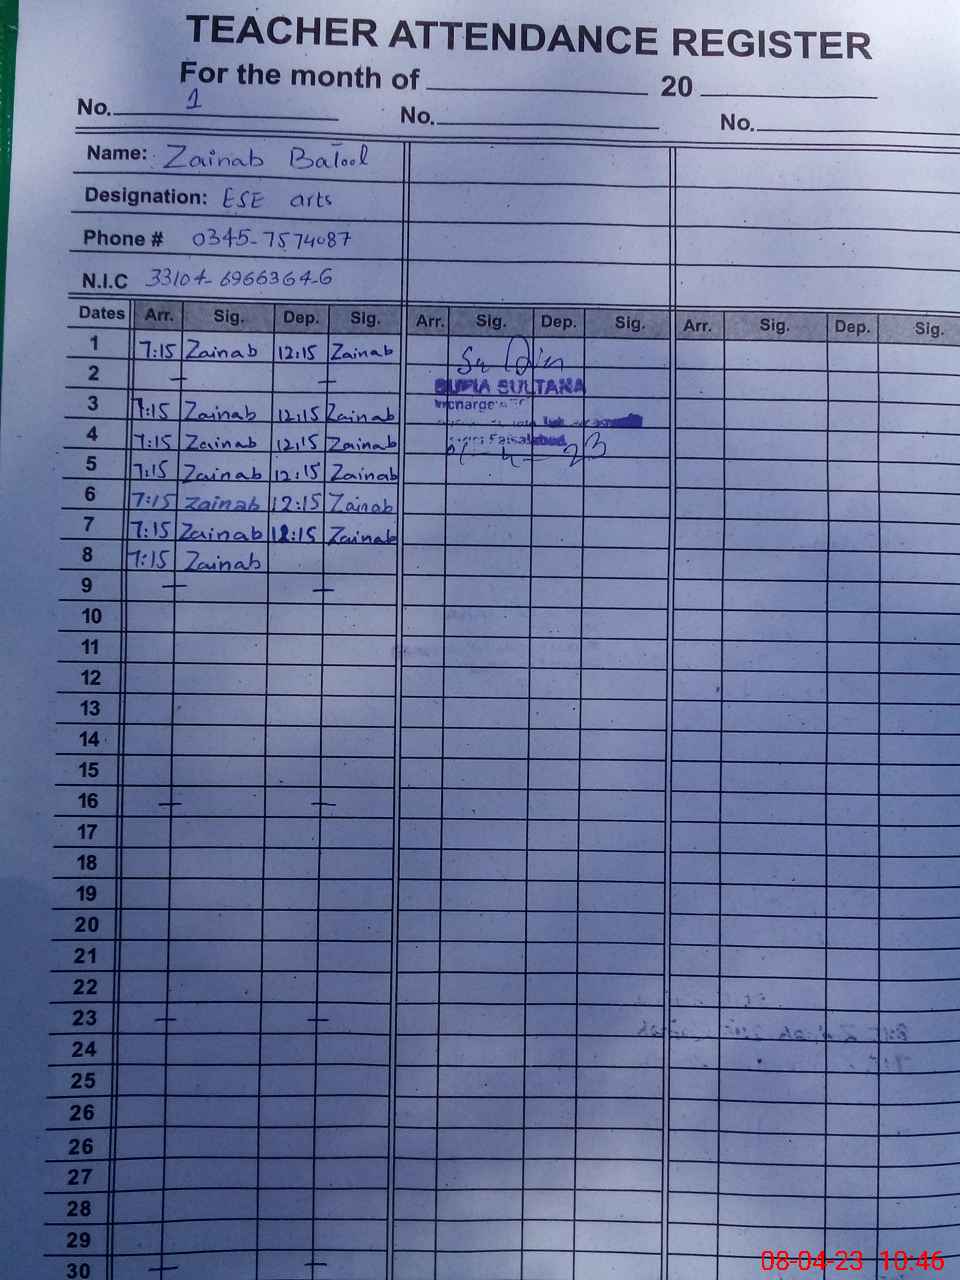 TEACHER ATTENDANCE REGISTER
For the month of 20
No. 1 No. No.
Name: Zainab Batool
Designation: ESE arts
Phone # 0345-7574087
N.I.C 33104-6966364-6
Dates Arr. Sig. Dep. Sig. Arr. Sig. Dep. Sig. Arr. Sig. Dep. Sig.
1 7:15 Zainab 12:15 Zainab
2 — —
SUFIA SULTANA
3 7:15 Zainab 12:15 Zainab Incharge
4 7:15 Zainab 12:15 Zainab Faisalabad
5 7:15 Zainab 12:15 Zainab
6 7:15 Zainab 12:15 Zainab
7 7:15 Zainab 12:15 Zainab
8 7:15 Zainab
9 — —
10
11
12
13
14
15
16 — —
17
18
19
20
21
22
23 — —
24
25
26
26
27
28
29
30 — —
08-04-23 10:46